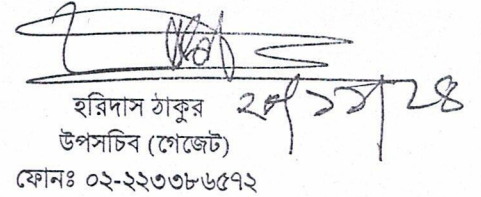 হরিদাস ঠাকুর
উপসচিব (গেজেট)
ফোনঃ ০২-২২৩৩৮৬৫৭২